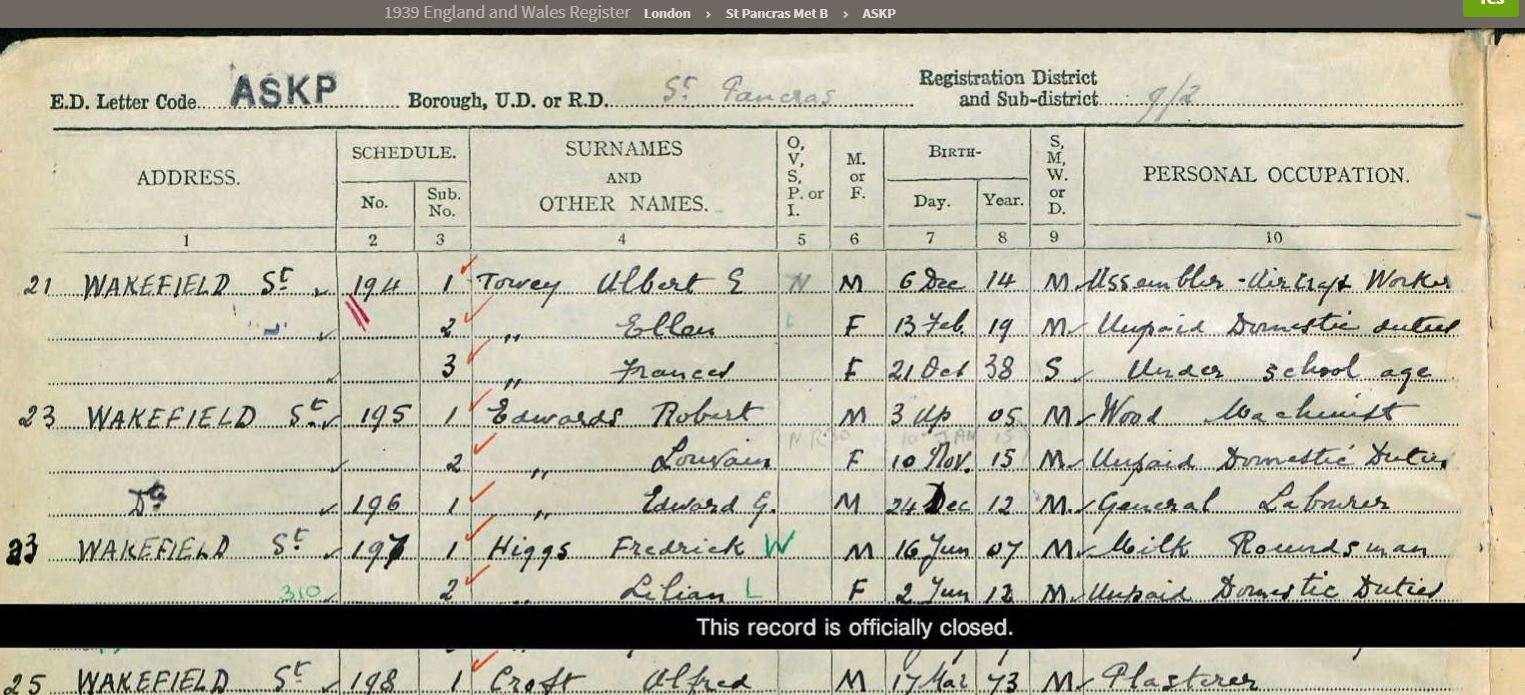 1939 England and Wales Register London › St Pancras Met B › ASKP
E.D. Letter Code ASKP Borough, U.D. or R.D. St Pancras Registration District and Sub-district 9/2
ADDRESS. SCHEDULE. No. Sub. No. SURNAMES AND OTHER NAMES. O, V, S, P. or I. M. or F. BIRTH- Day. Year. S, M, W. or D. PERSONAL OCCUPATION.
1 2 3 4 5 6 7 8 9 10
21 WAKEFIELD St 194 1 Towey Albert E M 6 Dec 14 M Assembler - Aircraft Worker
2 " Ellen F 13 Feb 19 M Unpaid Domestic duties
3 " Frances F 21 Oct 38 S Under school age
23 WAKEFIELD St 195 1 Edwards Robert M 3 Ap 05 M Wood Machinist
2 " Louvain F 10 Nov. 15 M Unpaid Domestic Duties
Do 196 1 " Edward G. M 24 Dec 12 M. General Labourer
23 WAKEFIELD St 197 1 Higgs Fredrick W M 16 Jun 07 M Milk Roundsman
310 2 " Lilian L F 2 Jun 12 M Unpaid Domestic Duties
This record is officially closed.
25 WAKEFIELD St 198 1 Croft Alfred M 17 Mar 73 M Plasterer